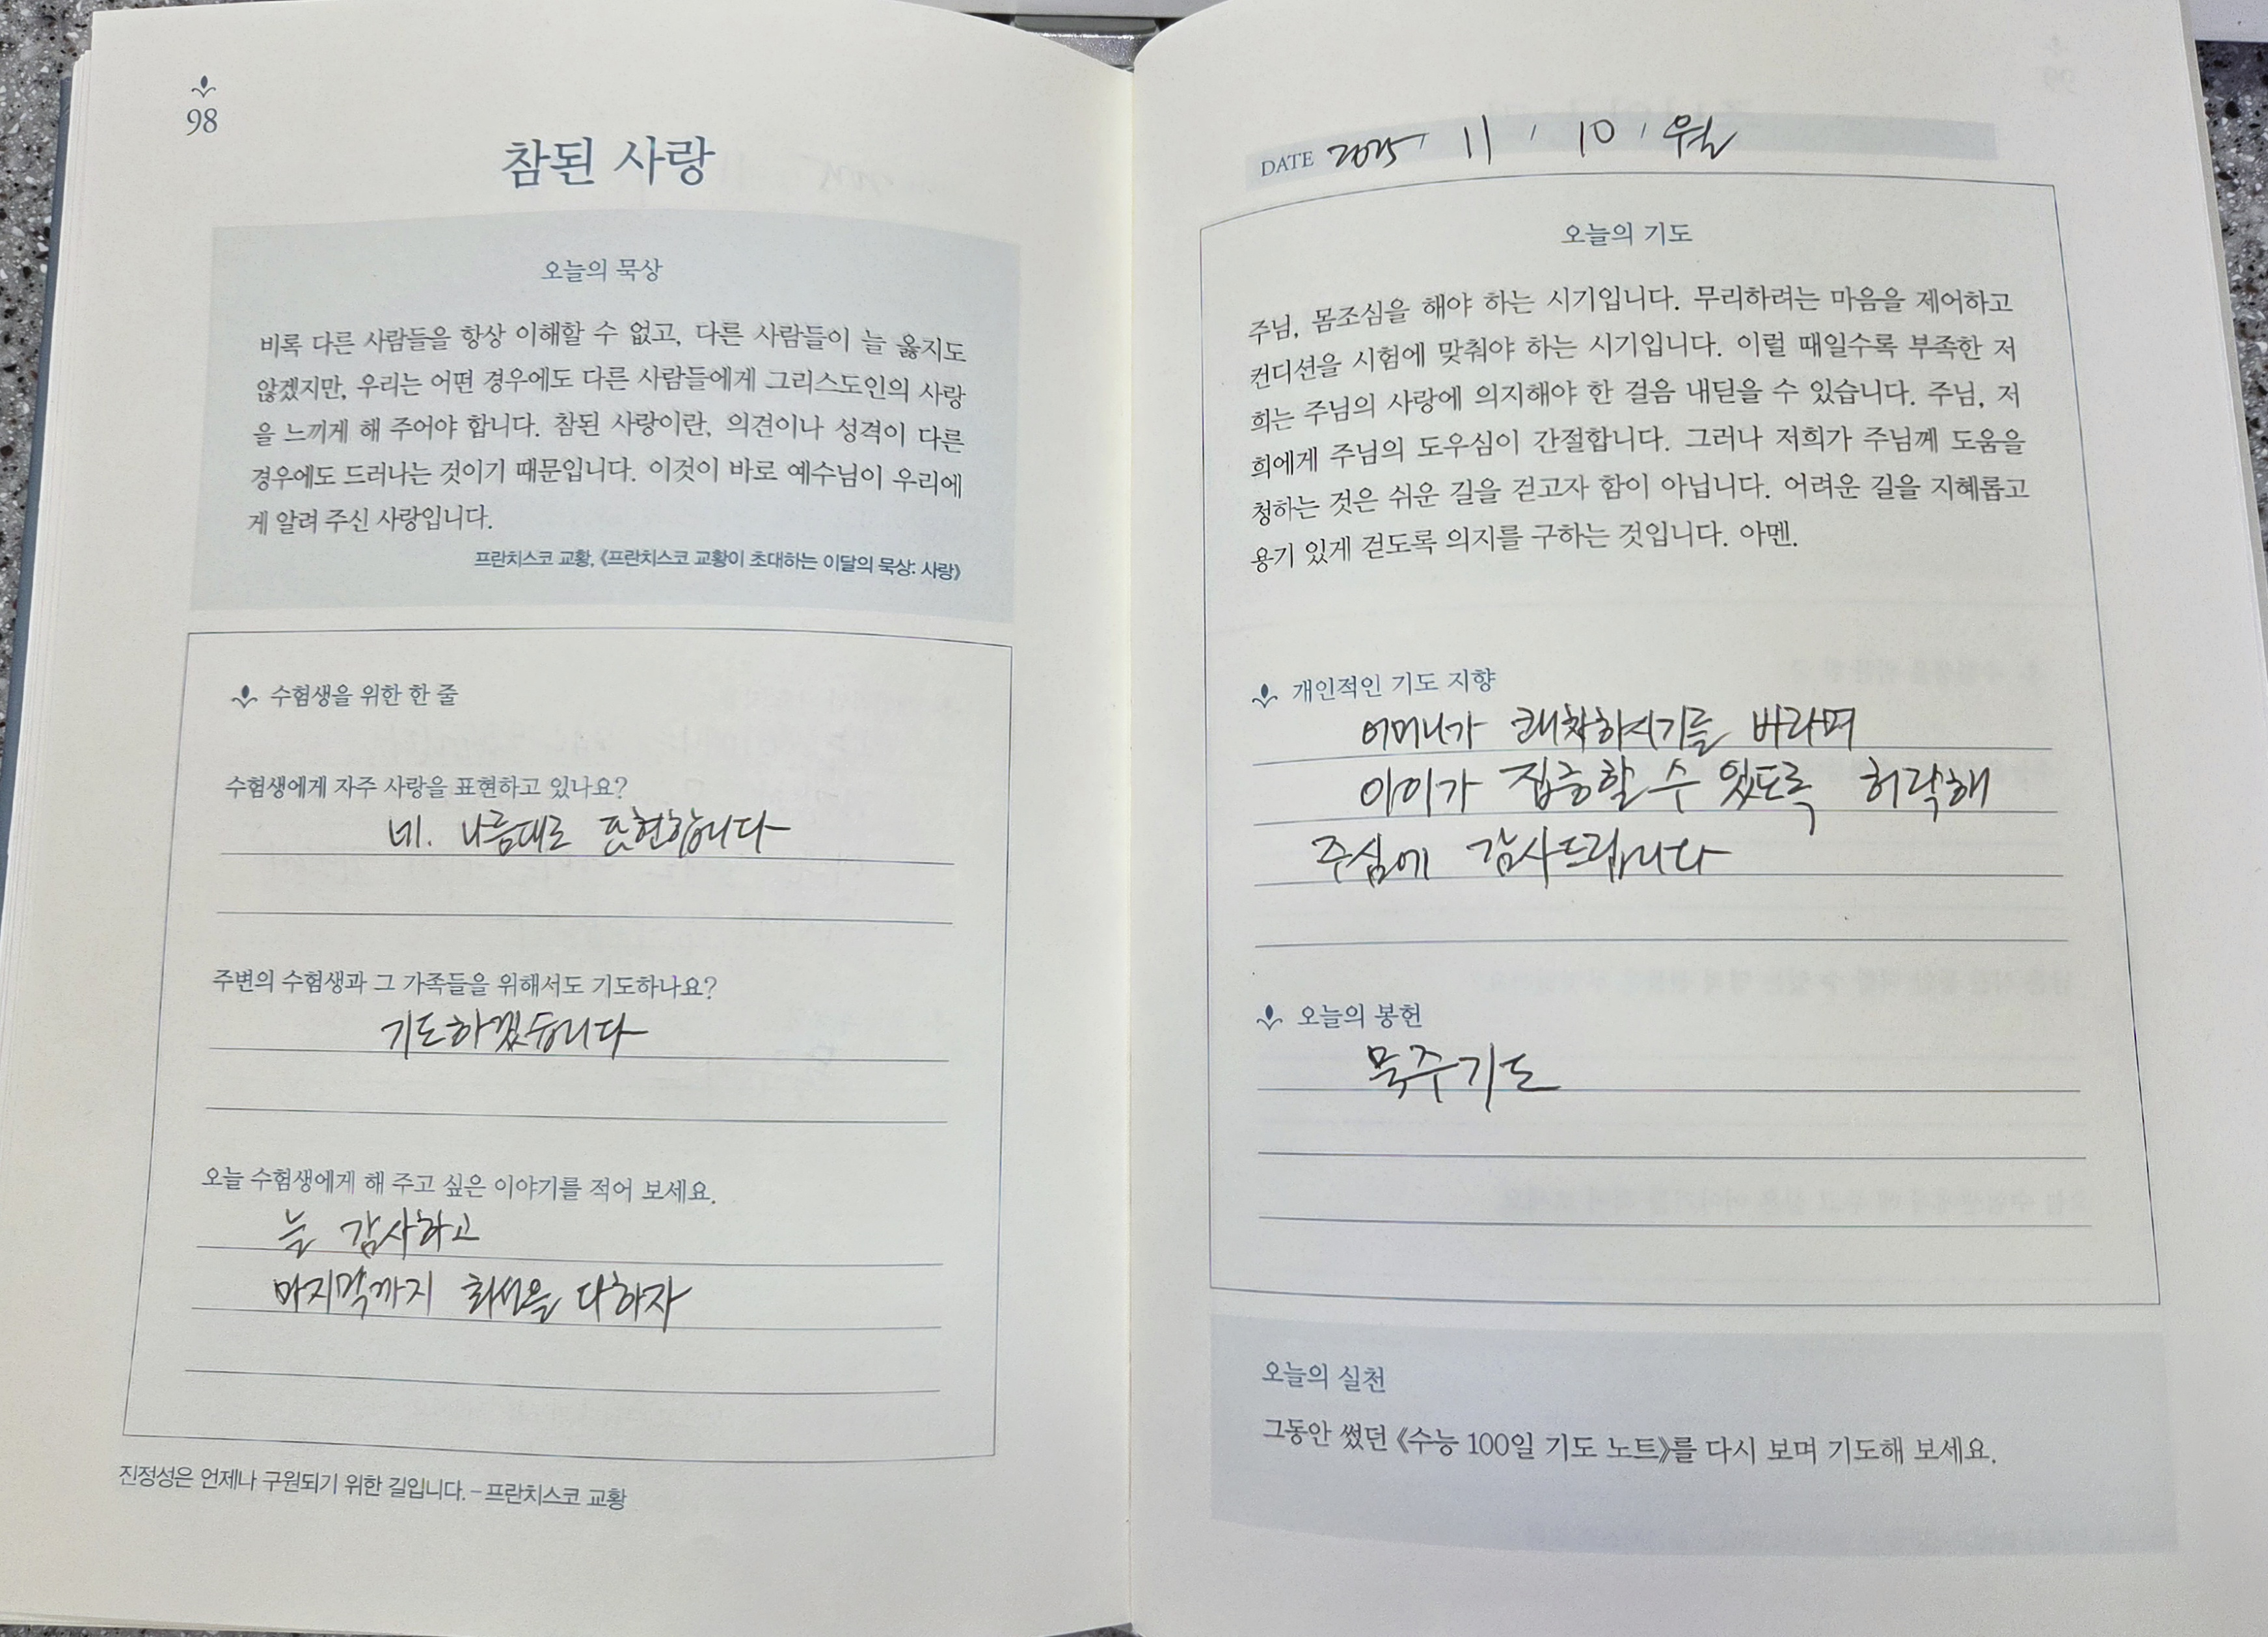 98
참된 사랑
오늘의 묵상
비록 다른 사람들을 항상 이해할 수 없고, 다른 사람들이 늘 옳지도
않겠지만, 우리는 어떤 경우에도 다른 사람들에게 그리스도인의 사랑
을 느끼게 해 주어야 합니다. 참된 사랑이란, 의견이나 성격이 다른
경우에도 드러나는 것이기 때문입니다. 이것이 바로 예수님이 우리에
게 알려 주신 사랑입니다.
프란치스코 교황, 《프란치스코 교황이 초대하는 이달의 묵상: 사랑》
수험생을 위한 한 줄
수험생에게 자주 사랑을 표현하고 있나요?
네. 나름대로 표현합니다
주변의 수험생과 그 가족들을 위해서도 기도하나요?
기도하겠습니다
오늘 수험생에게 해 주고 싶은 이야기를 적어 보세요.
늘 감사하고
마지막까지 최선을 다하자
진정성은 언제나 구원되기 위한 길입니다. – 프란치스코 교황
DATE 2025 / 11 / 10 / 월
오늘의 기도
주님, 몸조심을 해야 하는 시기입니다. 무리하려는 마음을 제어하고
컨디션을 시험에 맞춰야 하는 시기입니다. 이럴 때일수록 부족한 저
희는 주님의 사랑에 의지해야 한 걸음 내딛을 수 있습니다. 주님, 저
희에게 주님의 도우심이 간절합니다. 그러나 저희가 주님께 도움을
청하는 것은 쉬운 길을 걷고자 함이 아닙니다. 어려운 길을 지혜롭고
용기 있게 걷도록 의지를 구하는 것입니다. 아멘.
개인적인 기도 지향
어머니가 쾌차하시기를 바라며
아이가 집중할 수 있도록 허락해
주심에 감사드립니다
오늘의 봉헌
묵주기도
오늘의 실천
그동안 썼던 《수능 100일 기도 노트》를 다시 보며 기도해 보세요.